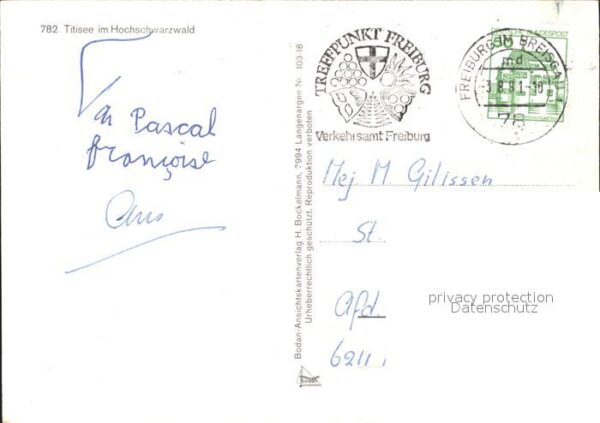 782 Titisee im Hochschwarzwald
Pascal
Françoise
Bodan-Ansichtskartenverlag H. Bockelmann, 7994 Langenargen Nr. 103-18
Urheberrechtlich geschützt, Reproduktion verboten
bodan
TREFFPUNKT FREIBURG
Verkehrsamt Freiburg
FREIBURG IM BREISGAU
md
-3.8.81-18
78
50
BUNDESPOST
Mej M Gilissen
St.
Afd.
6211
privacy protection
Datenschutz